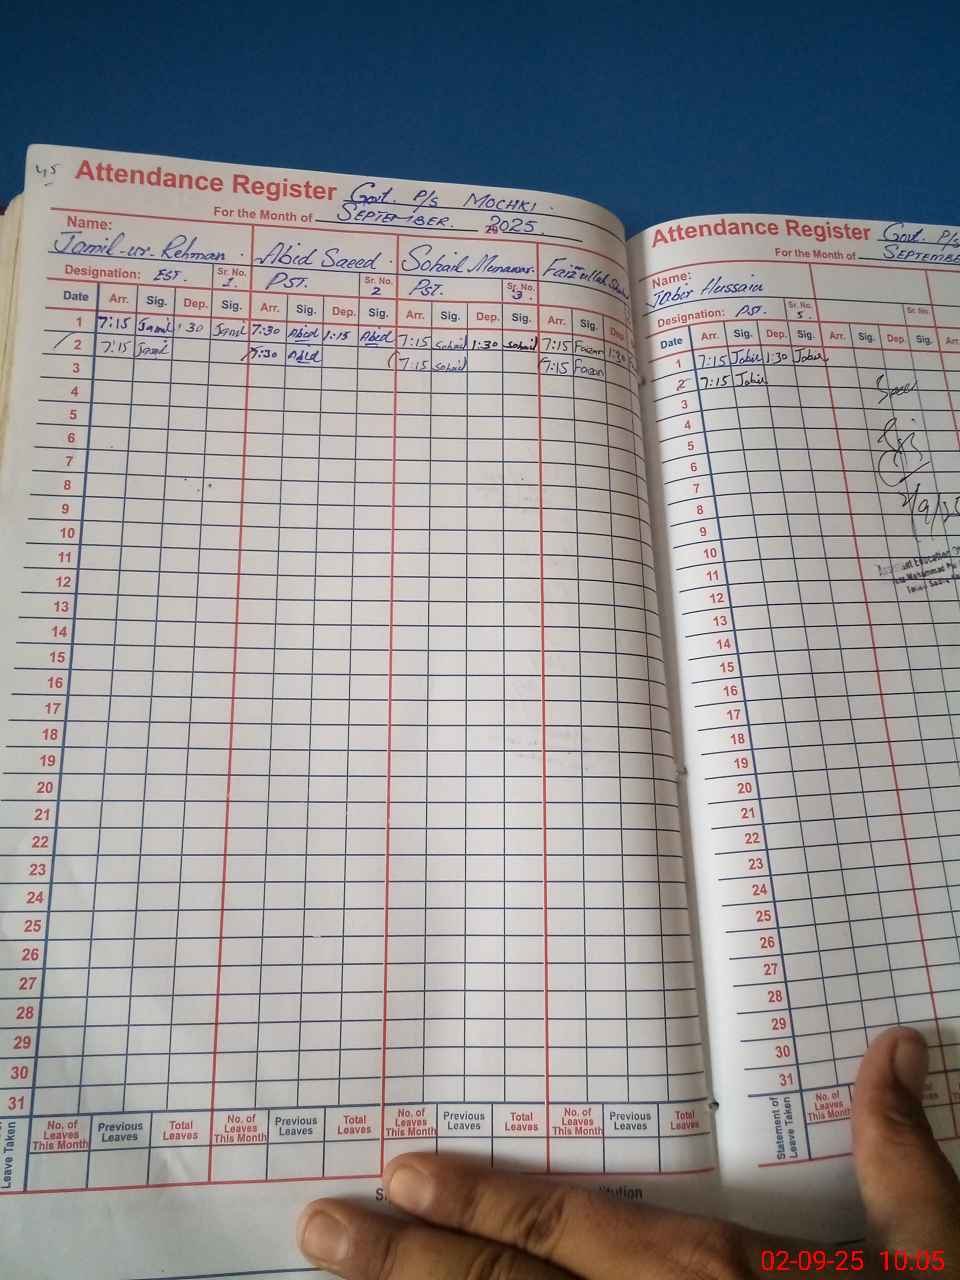 45
Attendance Register Govt. P/S MOCHKI.
For the Month of SEPTEMBER. 2025.
Name:
Jamil-ur-Rehman. Abid Saeed. Sohail Munawar. Faizullah
Designation: EST. Sr. No. 1. PST. Sr. No. 2 PST. Sr. No. 3.
Date Arr. Sig. Dep. Sig. Arr. Sig. Dep. Sig. Arr. Sig. Dep. Sig. Arr. Sig. Dep
1 7:15 Jamil 1:30 Jamil 7:30 Abid 1:15 Abid 7:15 Sohail 1:30 Sohail 7:15 Faizan 1:30
2 7:15 Jamil 7:30 Abid 7:15 Sohail 7:15 Faizan
3
4
5
6
7
8
9
10
11
12
13
14
15
16
17
18
19
20
21
22
23
24
25
26
27
28
29
30
31
Leave Taken No. of Leaves This Month Previous Leaves Total Leaves No. of Leaves This Month Previous Leaves Total Leaves No. of Leaves This Month Previous Leaves Total Leaves No. of Leaves This Month Previous Leaves Total Leaves
Attendance Register Govt. P/S
For the Month of SEPTEMBE
Name:
Jabir Hussain
Designation: PST. Sr. No. 5. Sr. No.
Date Arr. Sig. Dep. Sig. Arr. Sig. Dep. Sig. Arr
1 7:15 Jabir 1:30 Jabir
2 7:15 Jabir
3
4
5
6
7
8
9
10
11
12
13
14
15
16
17
18
19
20
21
22
23
24
25
26
27
28
29
30
31
Statement of Leave Taken No. of Leaves This Month
02-09-25 10:05